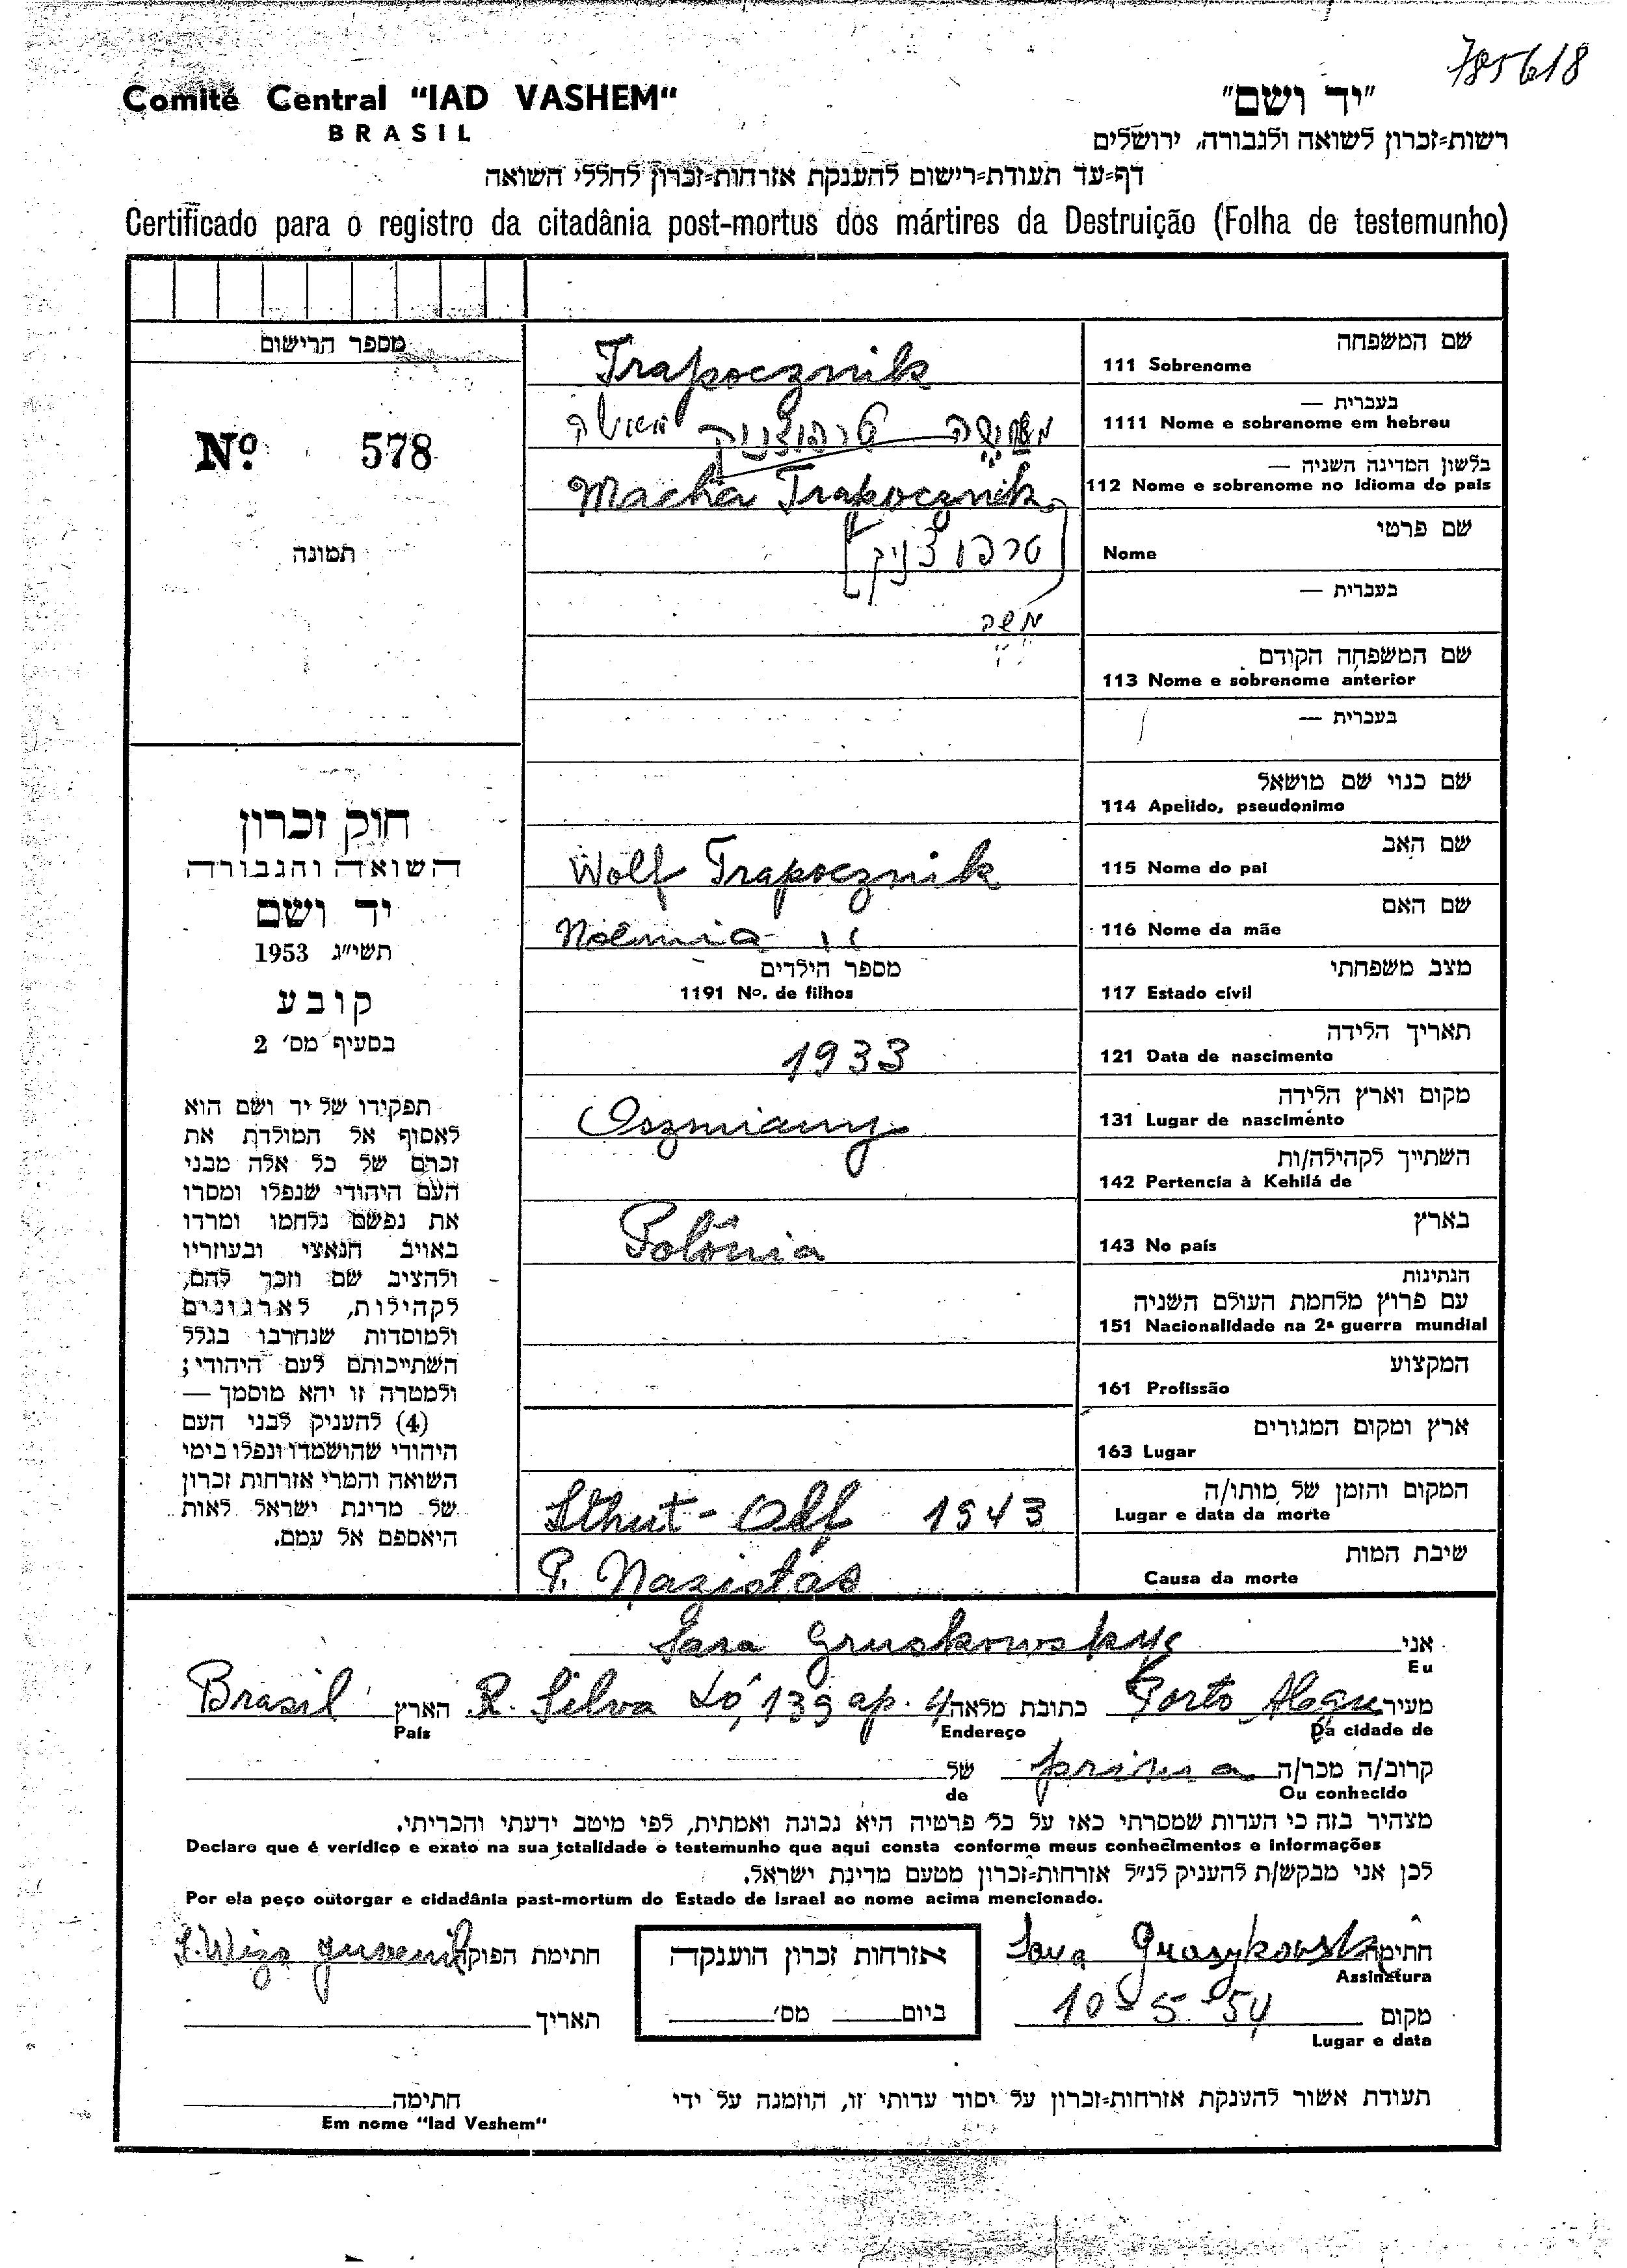 785618
Comité Central "IAD VASHEM"
BRASIL
"יד ושם"
רשות-זכרון לשואה ולגבורה, ירושלים
דף-עד תעודת-רישום להענקת אזרחות-זכרון לחללי השואה
Certificado para o registro da citadânia post-mortus dos mártires da Destruição (Folha de testemunho)
מספר הרישום
Nº. 578
תמונה
חוק זכרון
השואה והגבורה
יד ושם
תשי"ג 1953
קובע
בסעיף מס' 2
תפקידו של יד ושם הוא
לאסוף אל המולדת את
זכרם של כל אלה מבני
העם היהודי שנפלו ומסרו
את נפשם נלחמו ומרדו
באויב הנאצי ובעוזריו
ולהציב שם וזכר להם,
לקהילות, לארגונים
ולמוסדות שנחרבו בגלל
השתייכותם לעם היהודי;
ולמטרה זו יהא מוסמך —
(4) להעניק לבני העם
היהודי שהושמדו ונפלו בימי
השואה והמרי אזרחות זכרון
של מדינת ישראל לאות
היאספם אל עמם.
שם המשפחה
111 Sobrenome Trapocznik
בעברית —
1111 Nome e sobrenome em hebreu טרפוצניק
בלשון המדינה השניה —
112 Nome e sobrenome no idioma do pais Macha Trapocznik
שם פרטי
Nome [טרפוצניק]
בעברית — משה
שם המשפחה הקודם
113 Nome e sobrenome anterior
בעברית —
שם כנוי שם מושאל
114 Apelido, pseudonimo
שם האב
115 Nome do pai Wolf Trapocznik
שם האם
116 Nome da mãe Noemia "
מצב משפחתי
117 Estado civil
מספר הילדים
1191 Nº. de filhos
תאריך הלידה
121 Data de nascimento 1933
מקום וארץ הלידה
131 Lugar de nascimento Oszmiany
השתייך לקהילה/ות
142 Pertencia à Kehilá de
בארץ
143 No país Polônia
הנתינות
עם פרוץ מלחמת העולם השניה
151 Nacionalidade na 2ª guerra mundial
המקצוע
161 Profissão
ארץ ומקום המגורים
163 Lugar
המקום והזמן של מותו/ה
Lugar e data da morte Sthut-Off 1943
שיבת המות
Causa da morte P. Nazistas
אני Sara Gruskowskyc
Eu
מעיר Porto Alegre כתובת מלאה R. Silva Ló, 139 ap. 4 הארץ Brasil
Da cidade de Endereço País
קרוב/ה מכר/ה prima של
Ou conhecido de
מצהיר בזה כי העדות שמסרתי כאז על כל פרטיה היא נכונה ואמתית, לפי מיטב ידעתי והכריתי.
Declaro que é verídico e exato na sua totalidade o testemunho que aqui consta conforme meus conhecimentos e informações
לכן אני מבקש/ת להעניק לנ"ל אזרחות-זכרון מטעם מדינת ישראל.
Por ela peço outorgar e cidadânia past-mortum do Estado de Israel ao nome acima mencionado.
חתימה Sara
Assinatura
מקום 10-5-54
Lugar e data
אזרחות זכרון הוענקה
ביום מס'
חתימת הפוקד S. Wizo Juvenil
תאריך
תעודת אשור להענקת אזרחות-זכרון על יסוד עדותי זו, הוזמנה על ידי
חתימה
Em nome "Iad Veshem"